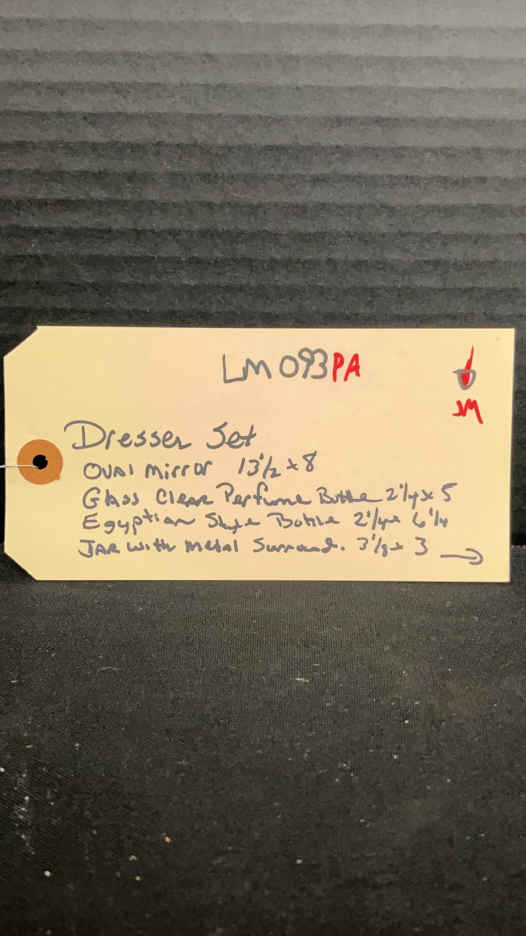 LM 093PA
JM
Dresser Set
OVAL Mirror 13 1/2 x 8
Glass Clear Perfume Bottle 2 1/4 x 5
Egyptian Style Bottle 2 1/4 x 6 1/4
JAR with Metal Surround. 3 1/8 x 3 →